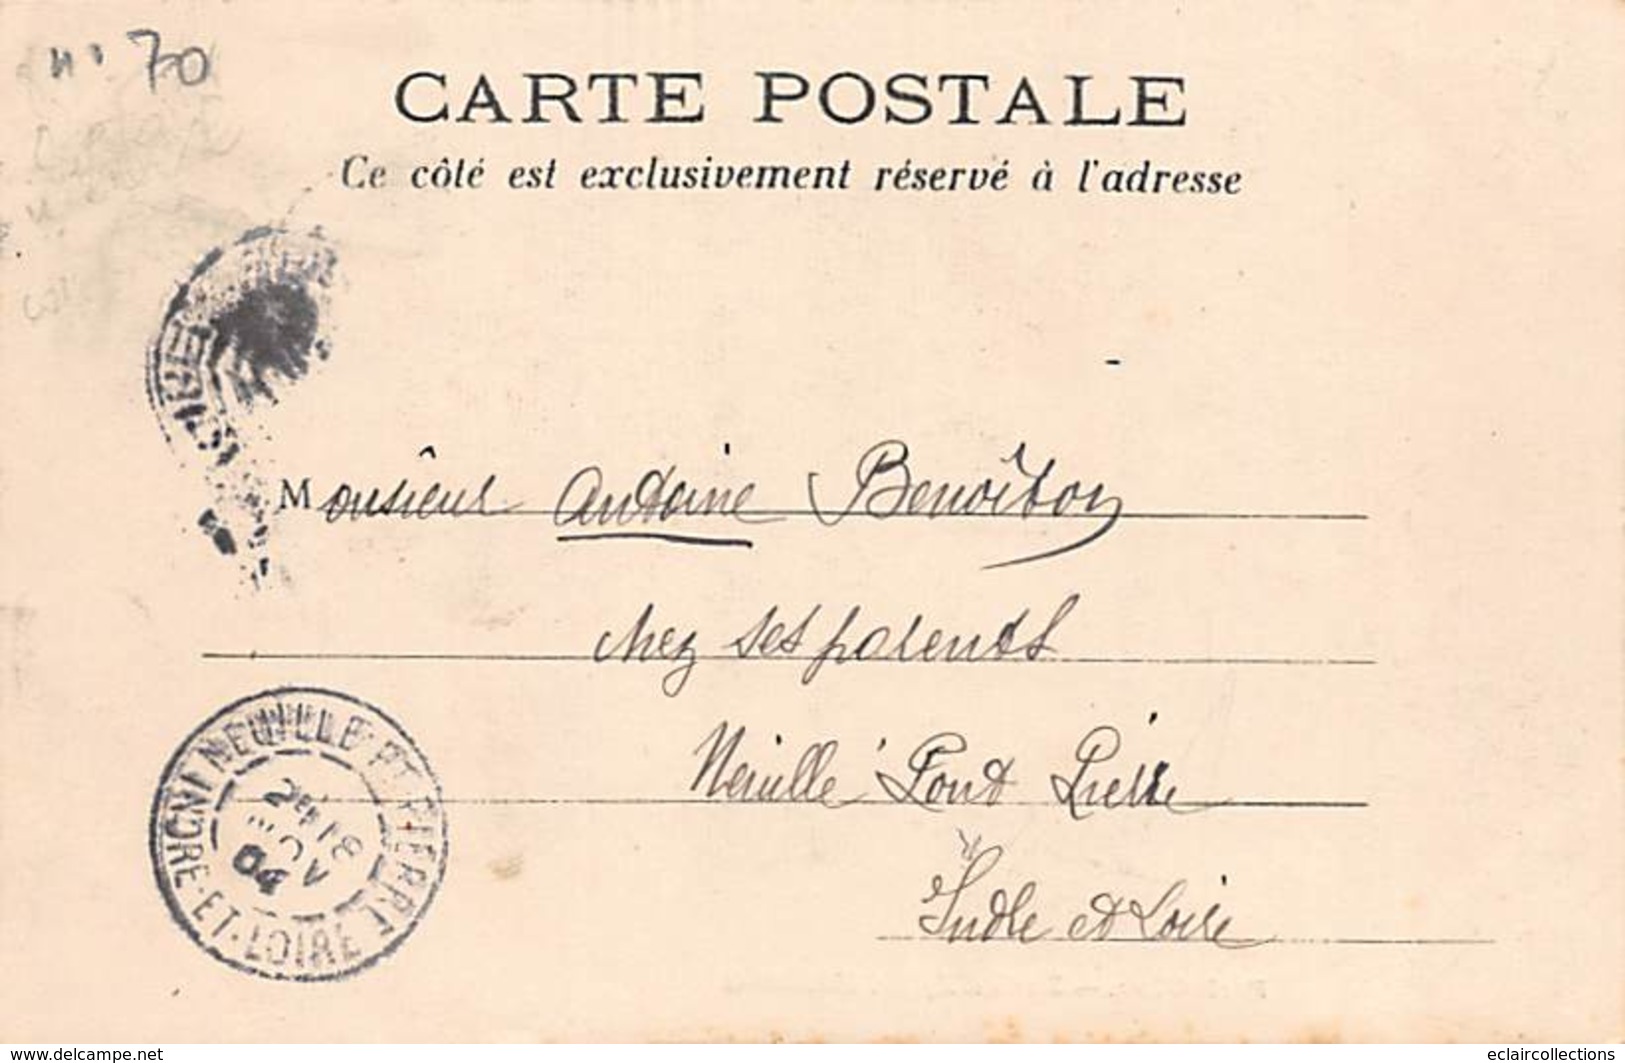 n° 70
CARTE POSTALE
Ce côté est exclusivement réservé à l'adresse
Monsieur Antoine Benoîton
chez ses parents
Neuillé Pont Pierre
Indre et Loire
NEUILLE-PT-PIERRE
INDRE-ET-LOIRE
04
www.delcampe.net
eclaircollections